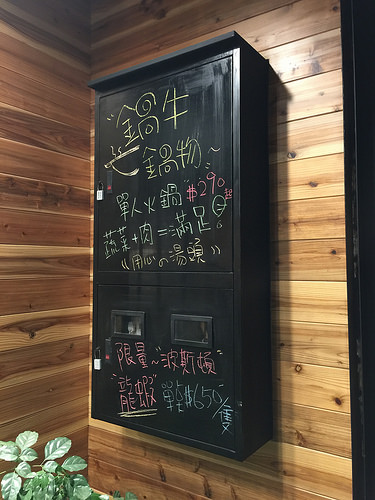 "鍋牛
鍋物~
單人火鍋 $290起
蔬菜+肉=滿足。
"用心の湯頭"
限量~"波斯頓"
"龍蝦" 單隻$650/隻